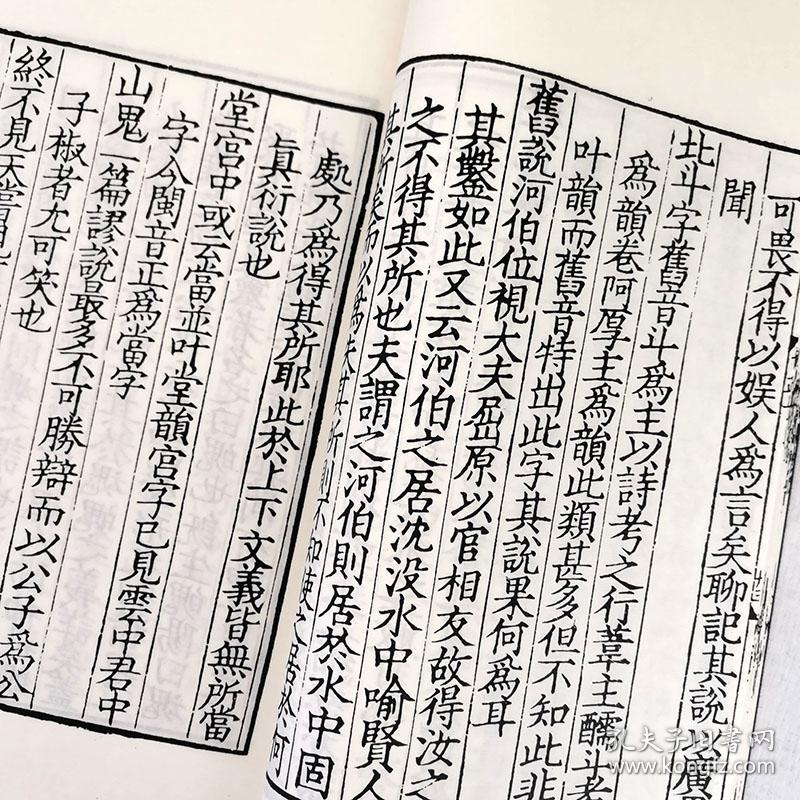 可畏不得以娱人為言矣聊記其說以廣
聞
北斗字舊音斗為主以詩考之行葦主醹斗耇
為韻卷阿厚主為韻此類甚多但不知此非
叶韻而舊音特出此字其說果何為耳
舊說河伯位視大夫屈原以官相友故得汝之
其鑿如此又云河伯之居沈没水中喻賢人
之不得其所也夫謂之河伯則居於水中固
其所矣而以為失其所則不知使之居於何
處乃為得其所耶此於上下文義皆無所當
真衍說也
堂宫中或云當並叶堂韻宫字已見雲中君中
字今閩音正為當字
山鬼一篇謬說最多不可勝辯而以公子為公
子椒者尤可笑也
終不見天
孔夫子旧书网
www.kongfz.com